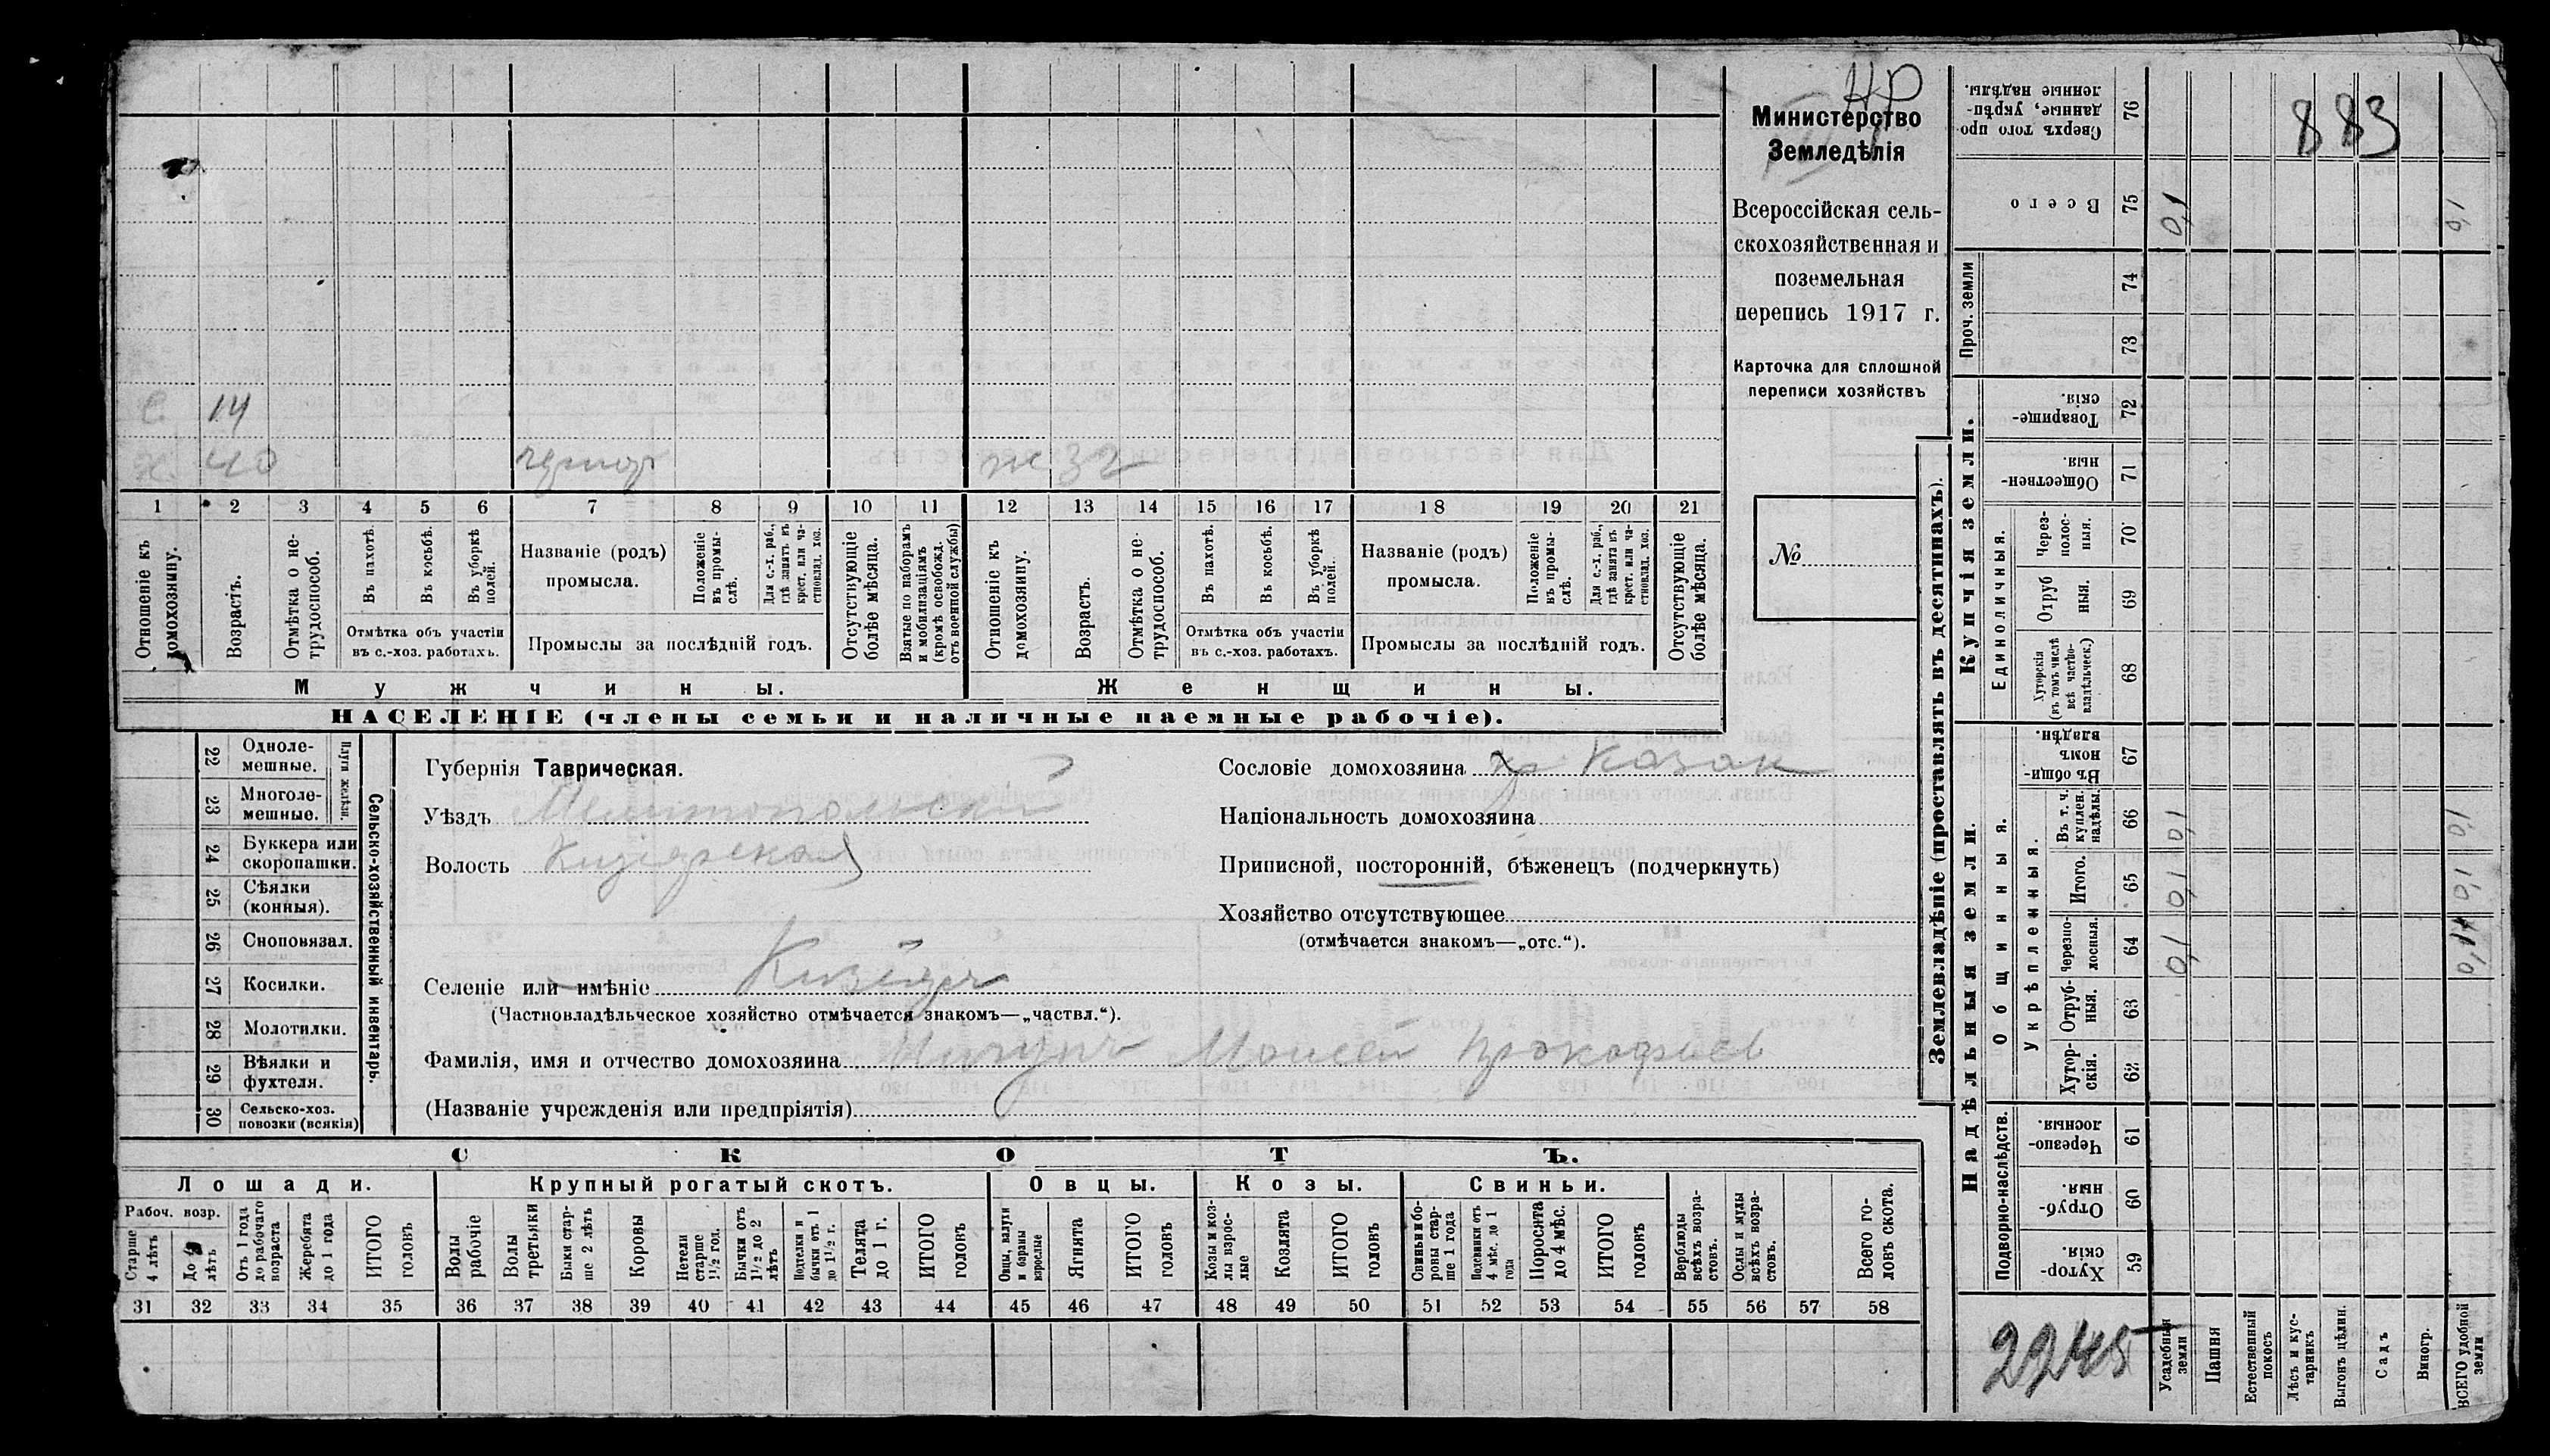 НР
Министерство
Земледѣлія
Всероссійская сель-
скохозяйственная и
поземельная
перепись 1917 г.
Карточка для сплошной
переписи хозяйствъ
№
с. 14
х. 40 ж 32
1 2 3 4 5 6 7 8 9 10 11 12 13 14 15 16 17 18 19 20 21
Отношеніе къ домохозяину.
Возрастъ.
Отмѣтка о не-трудоспособ.
Въ пахотѣ.
Въ косьбѣ.
Въ уборкѣ полей.
Отмѣтка объ участіи
въ с.-хоз. работахъ.
Названіе (родъ)
промысла.
Положеніе въ промы-слѣ.
Для с.-х. раб., гдѣ занятъ въ крест. или ча-стновлад. хоз.
Промыслы за послѣдній годъ.
Отсутствующіе болѣе мѣсяца.
Взятые по наборамъ и мобилизаціямъ (кромѣ освобожд. отъ военной службы)
Отношеніе къ домохозяину.
Возрастъ.
Отмѣтка о не-трудоспособ.
Въ пахотѣ.
Въ косьбѣ.
Въ уборкѣ полей.
Отмѣтка объ участіи
въ с.-хоз. работахъ.
Названіе (родъ)
промысла.
Положеніе въ промы-слѣ.
Для с.-х. раб., гдѣ занята въ крест. или ча-стновлад. хоз.
Промыслы за послѣдній годъ.
Отсутствующіе болѣе мѣсяца.
Мужчины.
Женщины.
НАСЕЛЕНІЕ (члены семьи и наличные наемные рабочіе).
22 Одноле-мешные.
23 Многоле-мешные.
Плуги желѣзн.
24 Буккера или скоропашки.
25 Сѣялки (конныя).
26 Сноповязал.
27 Косилки.
28 Молотилки.
29 Вѣялки и фухтеля.
30 Сельско-хоз. повозки (всякія)
Сельско-хозяйственный инвентарь.
Губернія Таврическая.
Уѣздъ Мелитопольскій
Волость Кизіярская
Селеніе или имѣніе Кизіяръ
(Частновладѣльческое хозяйство отмѣчается знакомъ—„частвл.“).
Фамилія, имя и отчество домохозяина Моисей Прокофьев
(Названіе учрежденія или предпріятія)
Сословіе домохозяина Казак
Національность домохозяина
Приписной, посторонній, бѣженецъ (подчеркнуть)
Хозяйство отсутствующее
(отмѣчается знакомъ—„отс.“).
СКОТЪ.
Лошади.
Рабоч. возр.
Старше 4 лѣтъ
До 4 лѣтъ
Отъ 1 года до рабочаго возраста
Жеребята до 1 года
ИТОГО головъ
Крупный рогатый скотъ.
Волы рабочіе
Волы третьяки
Быки стар-ше 2 лѣтъ
Коровы
Нетели старше 1½ год.
Бычки отъ 1½ до 2 лѣтъ
Подтелки и бычки отъ 1 до 1½ г.
Телята до 1 г.
ИТОГО головъ
Овцы.
Овцы, валухи и бараны взрослые
Ягнята
ИТОГО головъ
Козы.
Козы и коз-лы взрос-лые
Козлята
ИТОГО головъ
Свиньи.
Свиньи и бо-ровы стар-ше 1 года
Подсвинки отъ 4 мѣс. до 1 года
Поросята до 4 мѣс.
ИТОГО головъ
Верблюды всѣхъ возра-стовъ.
Ослы и мулы всѣхъ возра-стовъ.
Всего го-ловъ скота.
31 32 33 34 35 36 37 38 39 40 41 42 43 44 45 46 47 48 49 50 51 52 53 54 55 56 57 58
Землевладѣніе (проставлять въ десятинахъ).
Купчія земли.
Надѣльныя земли.
Сверхъ того про-данные, укрѣп-ленные надѣлы. 76
Всего 75
Проч. земли 74 73
Товарище-скія. 72
Обществен-ныя. 71
Единоличныя.
Через-полос-ныя. 70
Отруб ныя. 69
Хуторскія (въ томъ числѣ всѣ частно-владѣльческ.) 68
Въ общи-номъ владѣн. 67
Общинныя.
Укрѣпленныя.
Въ т. ч. куплен. надѣлы. 66
Итого. 65
Черезпо-лосныя. 64
Отруб-ныя. 63
Хутор-скія. 62
Подворно-наслѣдств.
Черезпо-лосныя. 61
Отруб-ныя. 60
Хутор-скія. 59
883
2245
Усадебныя земли
Пашня
Естественный покосъ
Лѣсъ и кус-тарникъ
Выгонъ цѣлин.
Садъ
Виногр.
ВСЕГО удобной земли